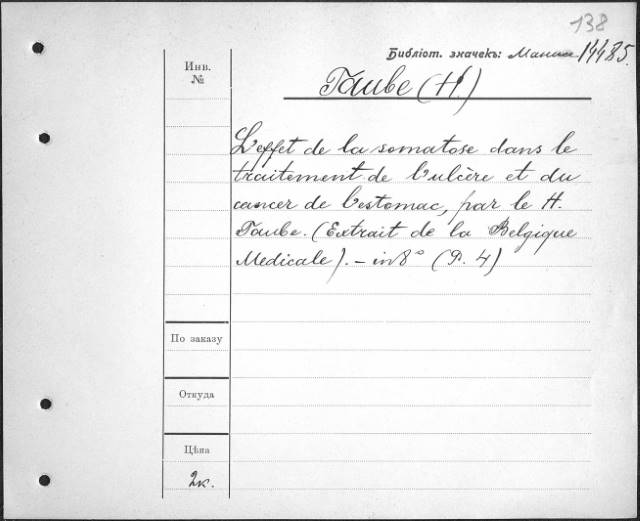 138
Библіот. значекъ: 14485.
Инв. №
Taube (H.)
L'effet de la somatose dans le
traitement de l'ulcère et du
cancer de l'estomac, par le H.
Taube. (Extrait de la Belgique
Medicale). – in 8° (P. 4)
По заказу
Откуда
Цѣна
2к.